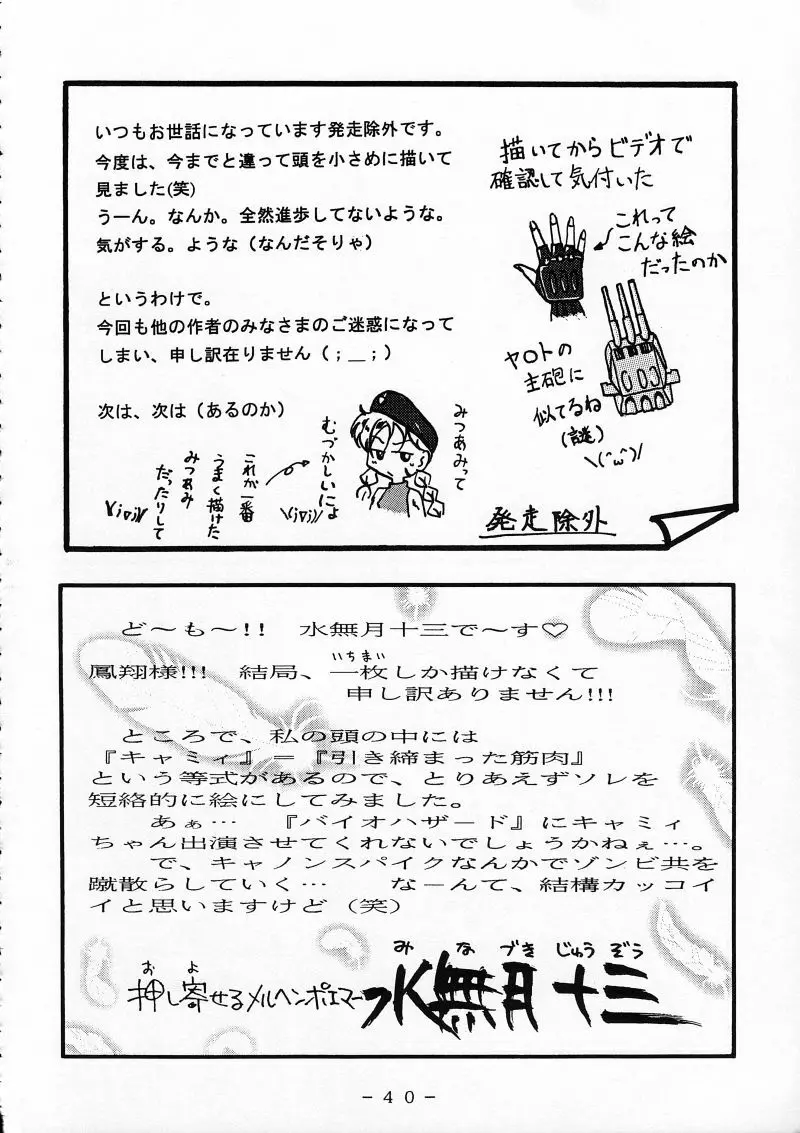 いつもお世話になっています発走除外です。
今度は、今までと違って頭を小さめに描いて
見ました(笑)
うーん。なんか。全然進歩してないような。
気がする。ような（なんだそりゃ）
というわけで。
今回も他の作者のみなさまのご迷惑になって
しまい、申し訳在りません（；＿；）
次は、次は（あるのか）
描いてからビデオで
確認して気付いた
これって
こんな絵
だったのか
ヤロトの
主砲に
似てるね
(謎)
\(^ω^)/
みつあみって
むづかしいによ
\(i▽i)/
これが一番
うまく描けた
みつあみ
だったりして
発走除外
ど～も～!!　水無月十三で～す♡
いちまい
鳳翔様!!!　結局、一枚しか描けなくて
申し訳ありません!!!
ところで、私の頭の中には
『キャミィ』＝『引き締まった筋肉』
という等式があるので、とりあえずソレを
短絡的に絵にしてみました。
あぁ…　『バイオハザード』にキャミィ
ちゃん出演させてくれないでしょうかねぇ…。
で、キャノンスパイクなんかでゾンビ共を
蹴散らしていく…　なーんて、結構カッコイ
イと思いますけど（笑）
お よ
押し寄せるメルヘンポエマー
み な づき じゅう ぞう
水無月十三
- 40 -